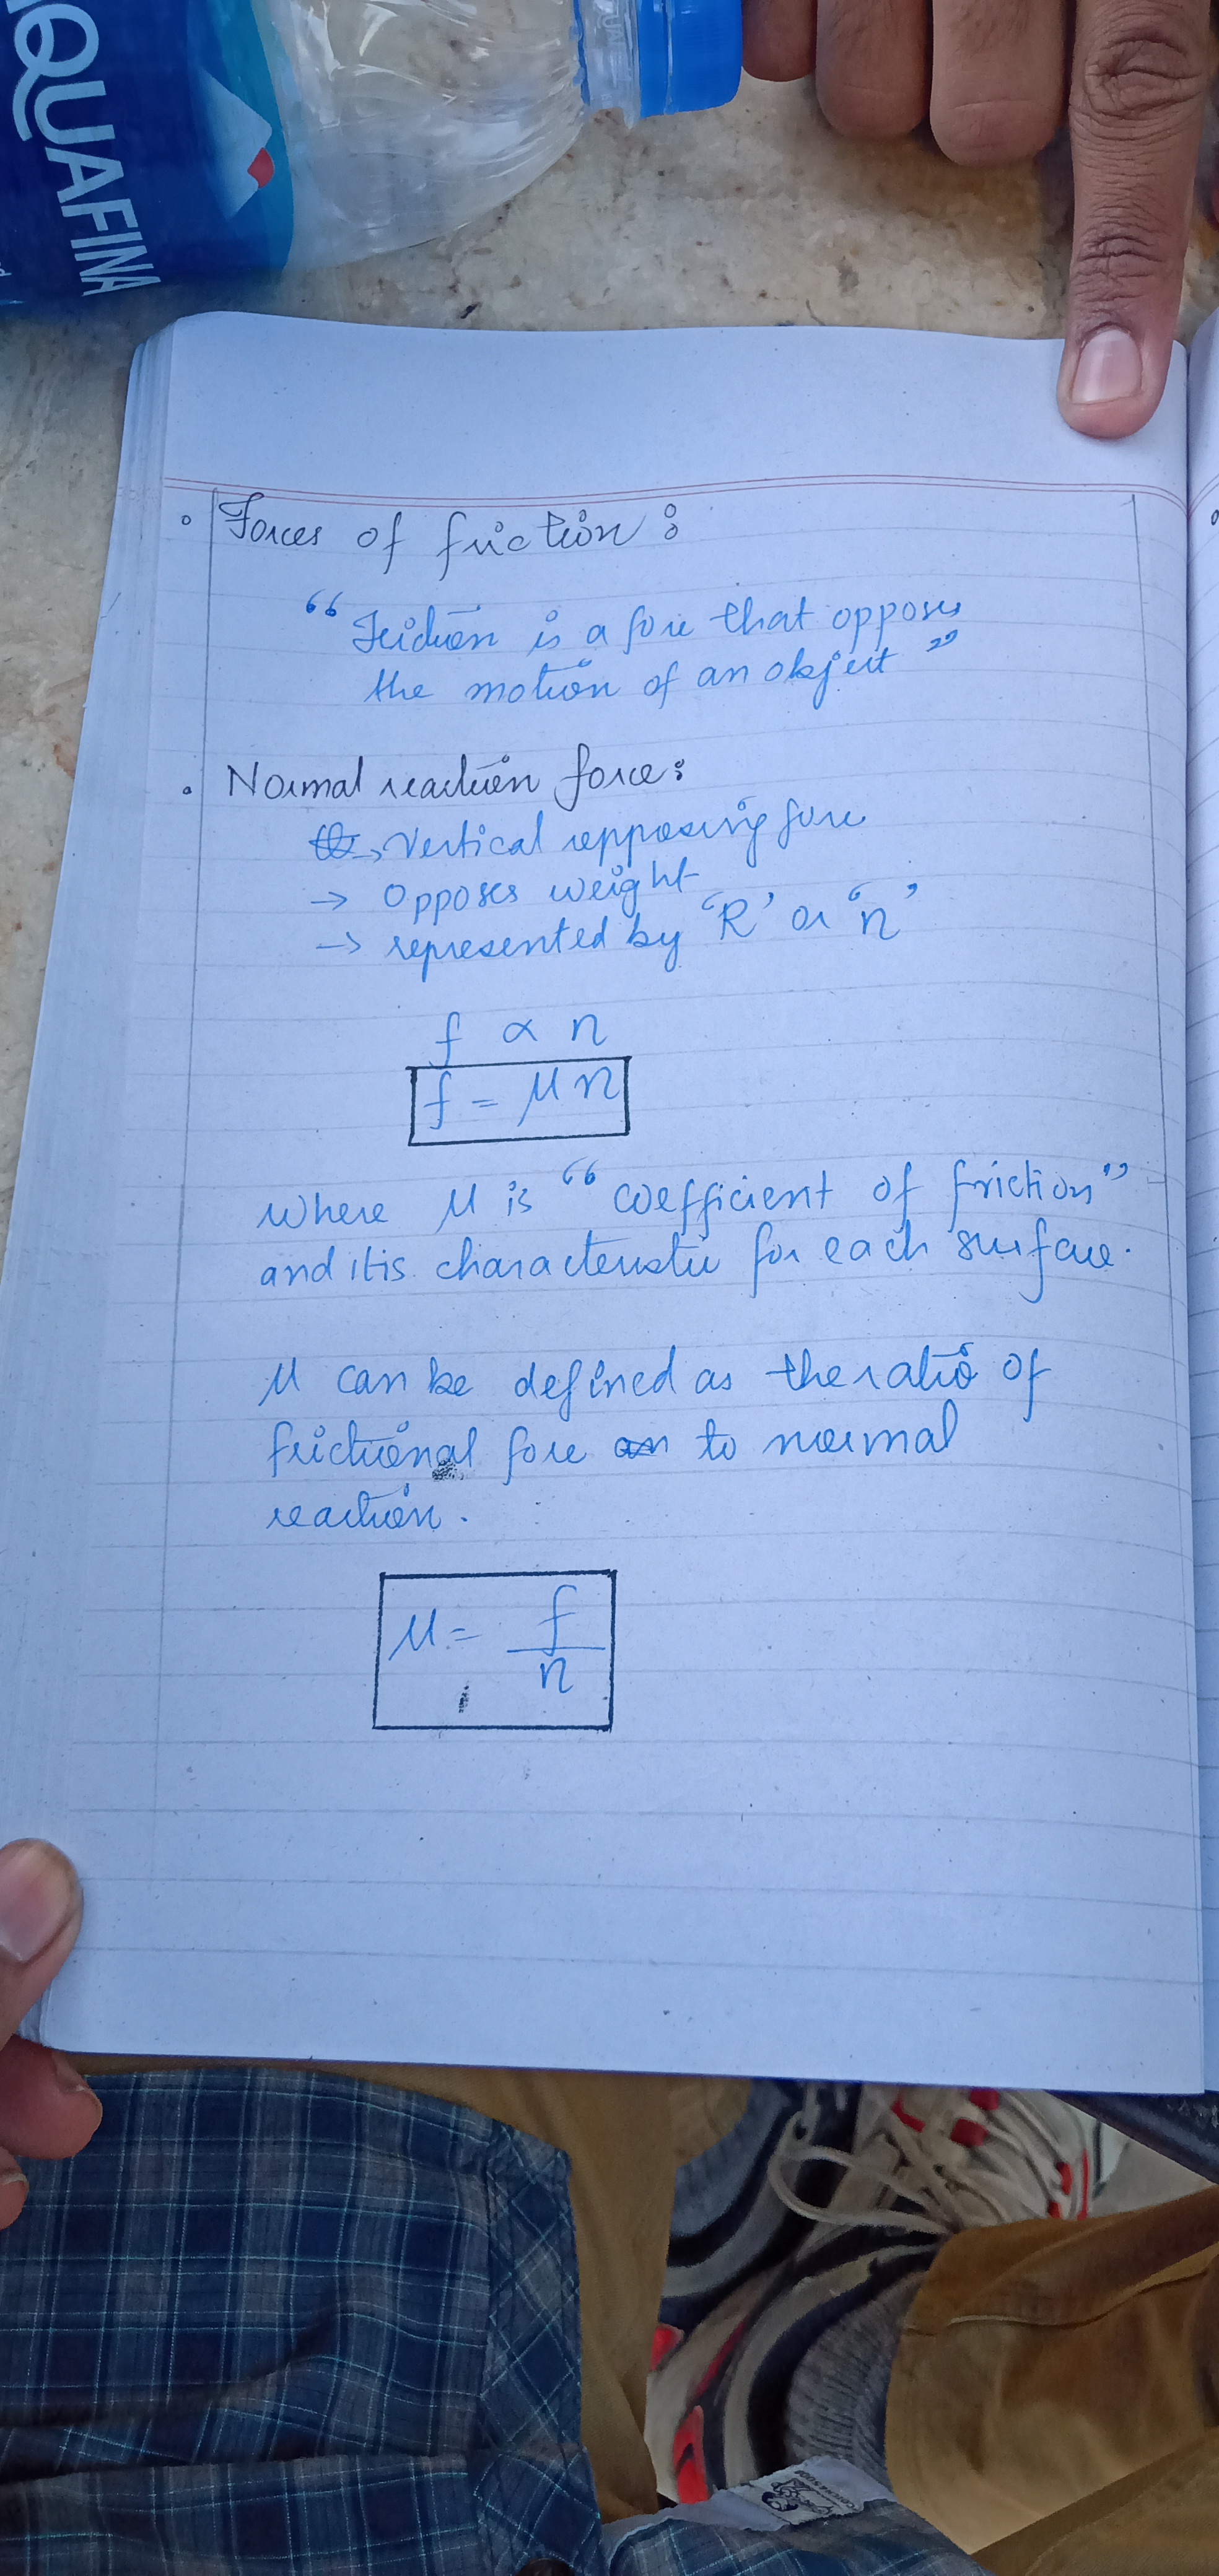 AQUAFINA
Forces of friction :
“ Friction is a force that opposes
the motion of an object ”
Normal reaction force :
→ Vertical opposing force
→ Opposes weight
→ represented by ‘R’ or ‘n’
f ∝ n
f = μ n
where μ is “ coefficient of friction ”
and it is characteristic for each surface.
μ can be defined as the ratio of
frictional force to normal
reaction .
μ = f/n